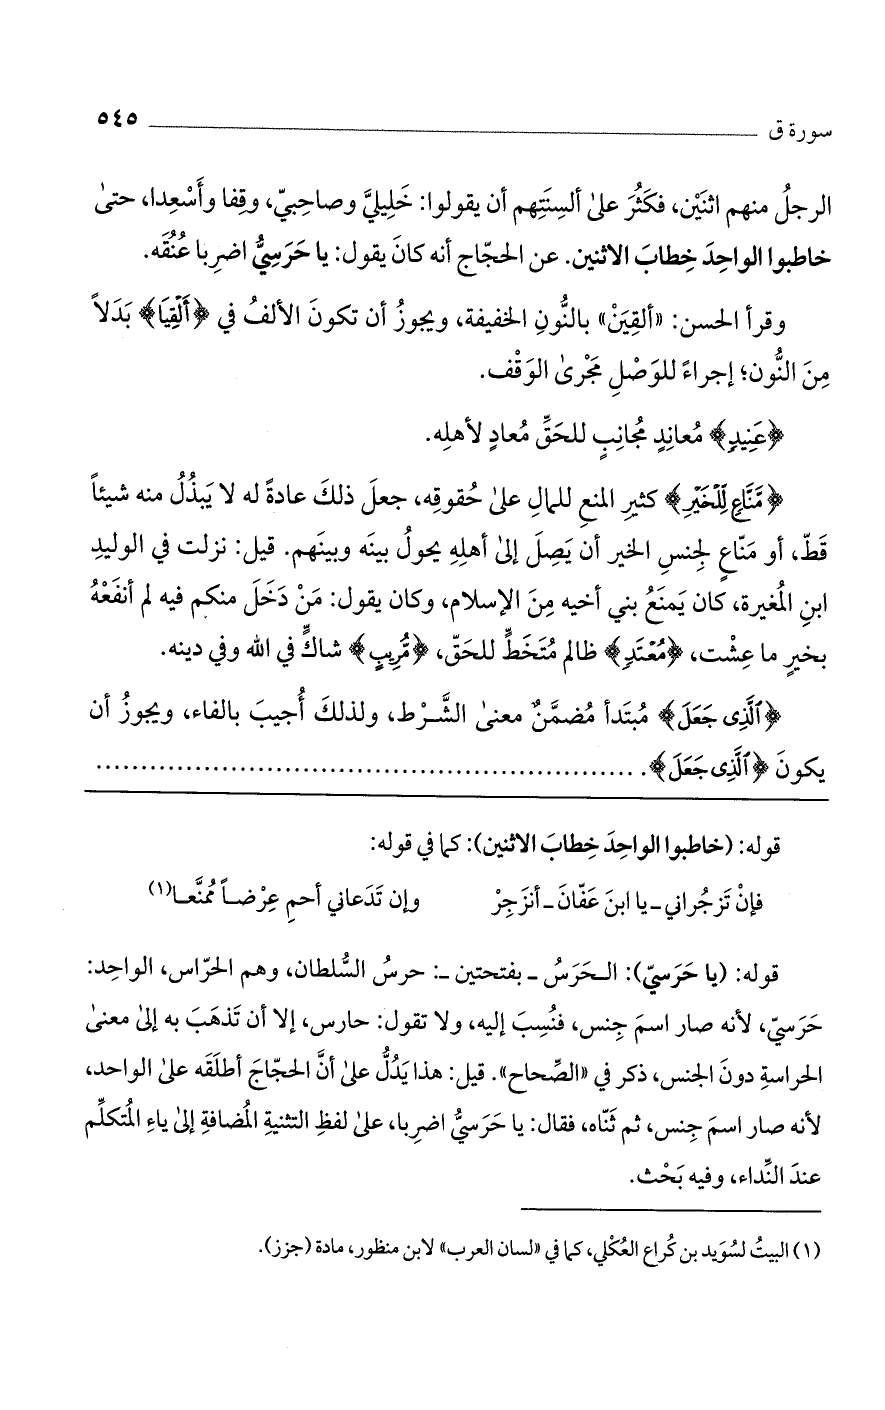 سورة ق ٥٤٥
الرجلُ منهم اثنَيْن، فكَثُرَ علىٰ ألسِنَتِهم أن يقولوا: خَلِيليَّ وصاحِبيّ، وقِفا وأَسْعِدا، حتىٰ
خاطبوا الواحِدَ خِطابَ الاثنين. عن الحجّاج أنه كانَ يقول: يا حَرَسِيُّ اضرِبا عُنُقَه.
وقرأ الحسن: «ألقِيَنْ» بالنُّونِ الخفيفة، ويجوزُ أن تكونَ الألفُ في ﴿أَلْقِيَا﴾ بَدَلاً
مِنَ النُّون؛ إجراءً للوَصْلِ مَجْرىٰ الوَقْف.
﴿عَنِيدٍ﴾ مُعانِدٍ مُجانِبٍ للحَقِّ مُعادٍ لأهلِه.
﴿مَّنَّاعٍ لِّلْخَيْرِ﴾ كثيرِ المنعِ للمالِ علىٰ حُقوقِه، جعلَ ذلكَ عادةً له لا يَبذُلُ منه شيئاً
قَطّ، أو مَنّاعٍ لجِنسِ الخير أن يَصِلَ إلىٰ أهلِهِ يحولُ بينَه وبينَهم. قيل: نزلت في الوليدِ
ابنِ المُغيرة، كان يَمنَعُ بني أخيه مِنَ الإسلام، وكان يقول: مَنْ دَخَلَ منكم فيه لم أنفَعْهُ
بخيرٍ ما عِشْت، ﴿مُعْتَدٍ﴾ ظالم مُتَخَطٍّ للحَقّ، ﴿مُّرِيبٍ﴾ شاكٍّ في الله وفي دينه.
﴿ٱلَّذِى جَعَلَ﴾ مُبتَدأ مُضمَّنٌ معنىٰ الشَّرْط، ولذلكَ أُجيبَ بالفاء، ويجوزُ أن
يكونَ ﴿ٱلَّذِى جَعَلَ﴾. ............................................................
قوله: (خاطبوا الواحِدَ خِطابَ الاثنين): كما في قوله:
فإنْ تَزجُراني ـ يا ابنَ عَفّانَ ـ أنزَجِرْ وإن تَدَعاني أحمِ عِرْضاً مُمنَّعا(١)
قوله: (يا حَرَسيّ): الـحَرَسُ ـ بفتحتين ـ: حرسُ السُّلطان، وهم الحرّاس، الواحِد:
حَرَسيّ، لأنه صار اسمَ جِنس، فنُسِبَ إليه، ولا تقول: حارس، إلا أن تَذهَبَ به إلىٰ معنىٰ
الحراسةِ دونَ الجنس، ذكر في «الصِّحاح». قيل: هذا يَدُلُّ علىٰ أنَّ الحجّاجَ أطلَقَه علىٰ الواحد،
لأنه صار اسمَ جِنس، ثم ثَنّاه، فقال: يا حَرَسيُّ اضرِبا، علىٰ لفظِ التثنيةِ المُضافةِ إلىٰ ياءِ المُتكلِّم
عندَ النِّداء، وفيه بَحْث.
(١) البيتُ لسُوَيد بن كُراع العُكْلي، كما في «لسان العرب» لابن منظور، مادة (جزز).